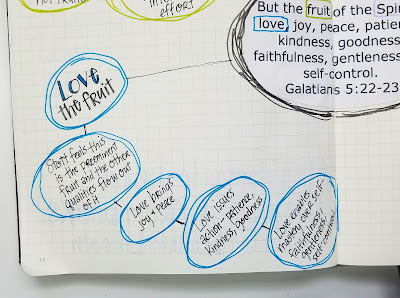 effort
But the fruit of the Spi
love, joy, peace, patien
kindness, goodness
faithfulness, gentleness
self-control.
Galatians 5:22-23
LOVE
the fruit
feels this
is the preeminent
fruit and the other
qualities flow out
of it
Love brings
joy + peace
Love issues
action - patience
kindness, goodness
Love enables
mastery over self-
faithfulness,
gentleness,
self-control